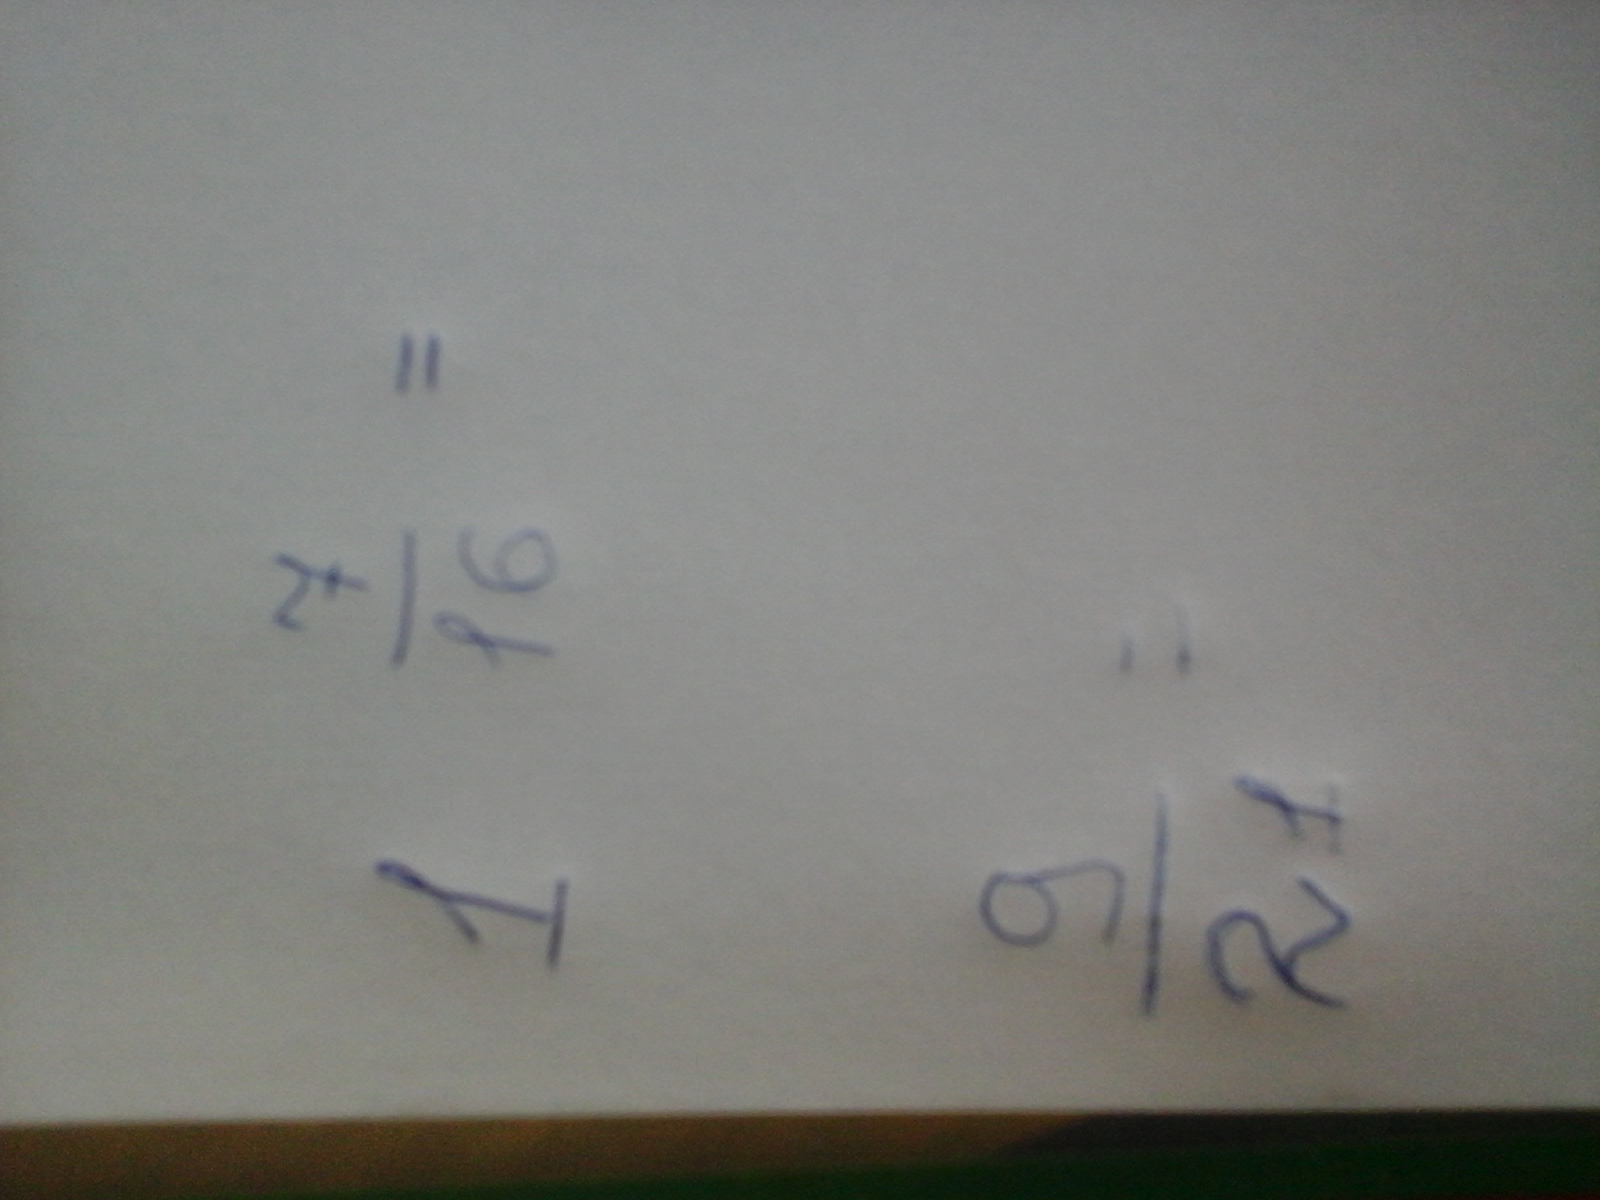 1 7/16 =
9/21 =